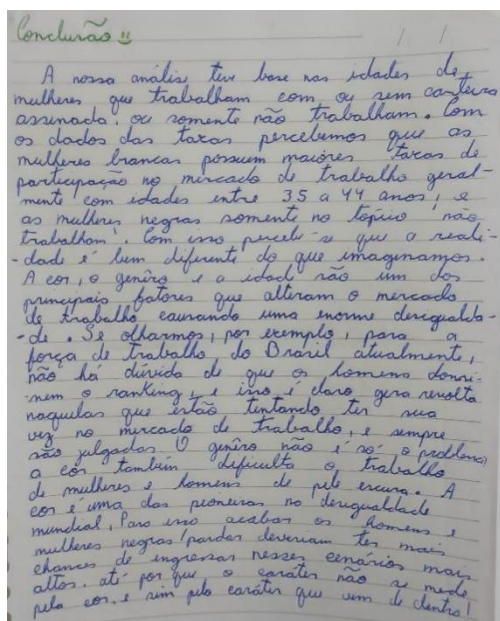 Conclusão !!
/ /
A nossa análise teve base nas idades de
mulheres que trabalham com ou sem carteira
assinada, ou somente não trabalham. Com
os dados das taxas percebemos que as
mulheres brancas possuem maiores taxas de
participação no mercado de trabalho geral-
mente com idades entre 35 a 44 anos, e
as mulheres negras somente no tópico "não
trabalham". Com isso percebe-se que a reali-
-dade é bem diferente do que imaginamos.
A cor, o genêro e a idade são um dos
principais fatores que alteram o mercado
de trabalho causando uma enorme desigualda-
-de. Se olharmos, por exemplo, para a
força de trabalho do Brasil atualmente,
não há dúvida de que os homens domi-
nem o ranking, e isso é claro gera revolta
naquelas que estão tentando ter sua
vez no mercado de trabalho, e sempre
são julgadas. O genêro não é só o problema
a cor também dificulta o trabalho
de mulheres e homens de pele escura. A
cor é uma das pioneiras na desigualdade
mundial. Para isso acabar os homens e
mulheres negras/pardas deveriam ter mais
chances de ingressar nesses cenários mais
altos, até por que o caráter não se mede
pela cor, e sim pelo caráter que vem de dentro!